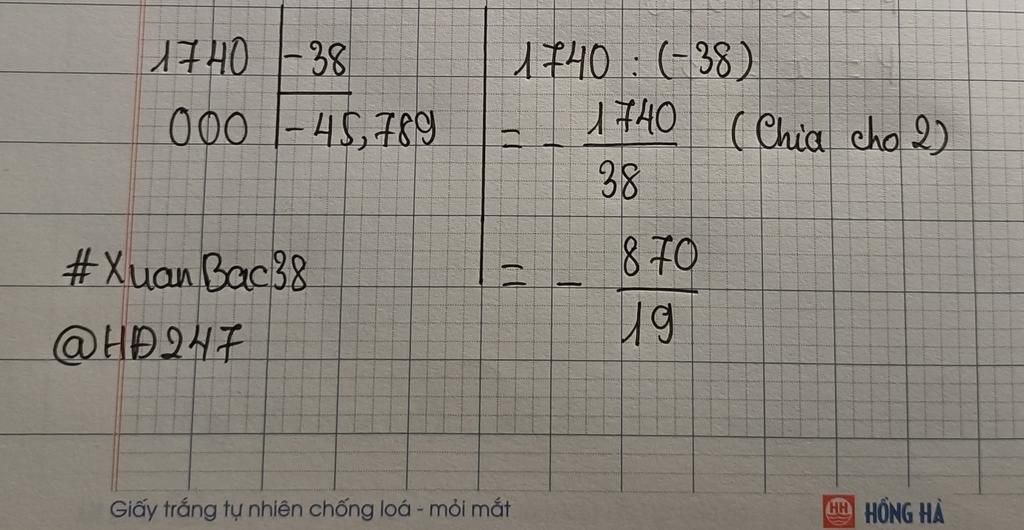 1740 -38
000 -45,789
#XuanBac38
@HĐ247
1740 : (-38)
= - 1740/38 (Chia cho 2)
= - 870/19
Giấy trắng tự nhiên chống loá - mỏi mắt
HH HỒNG HÀ